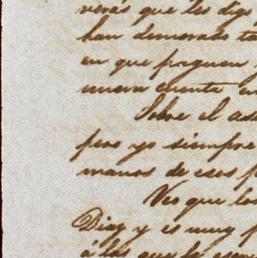 verás que les digo
han demorado ta
en que paguen
nueva cuenta en
Sobre el as
pero yo siempre
manos de esos p
Veo que los
Diaz y es muy p
á los que la